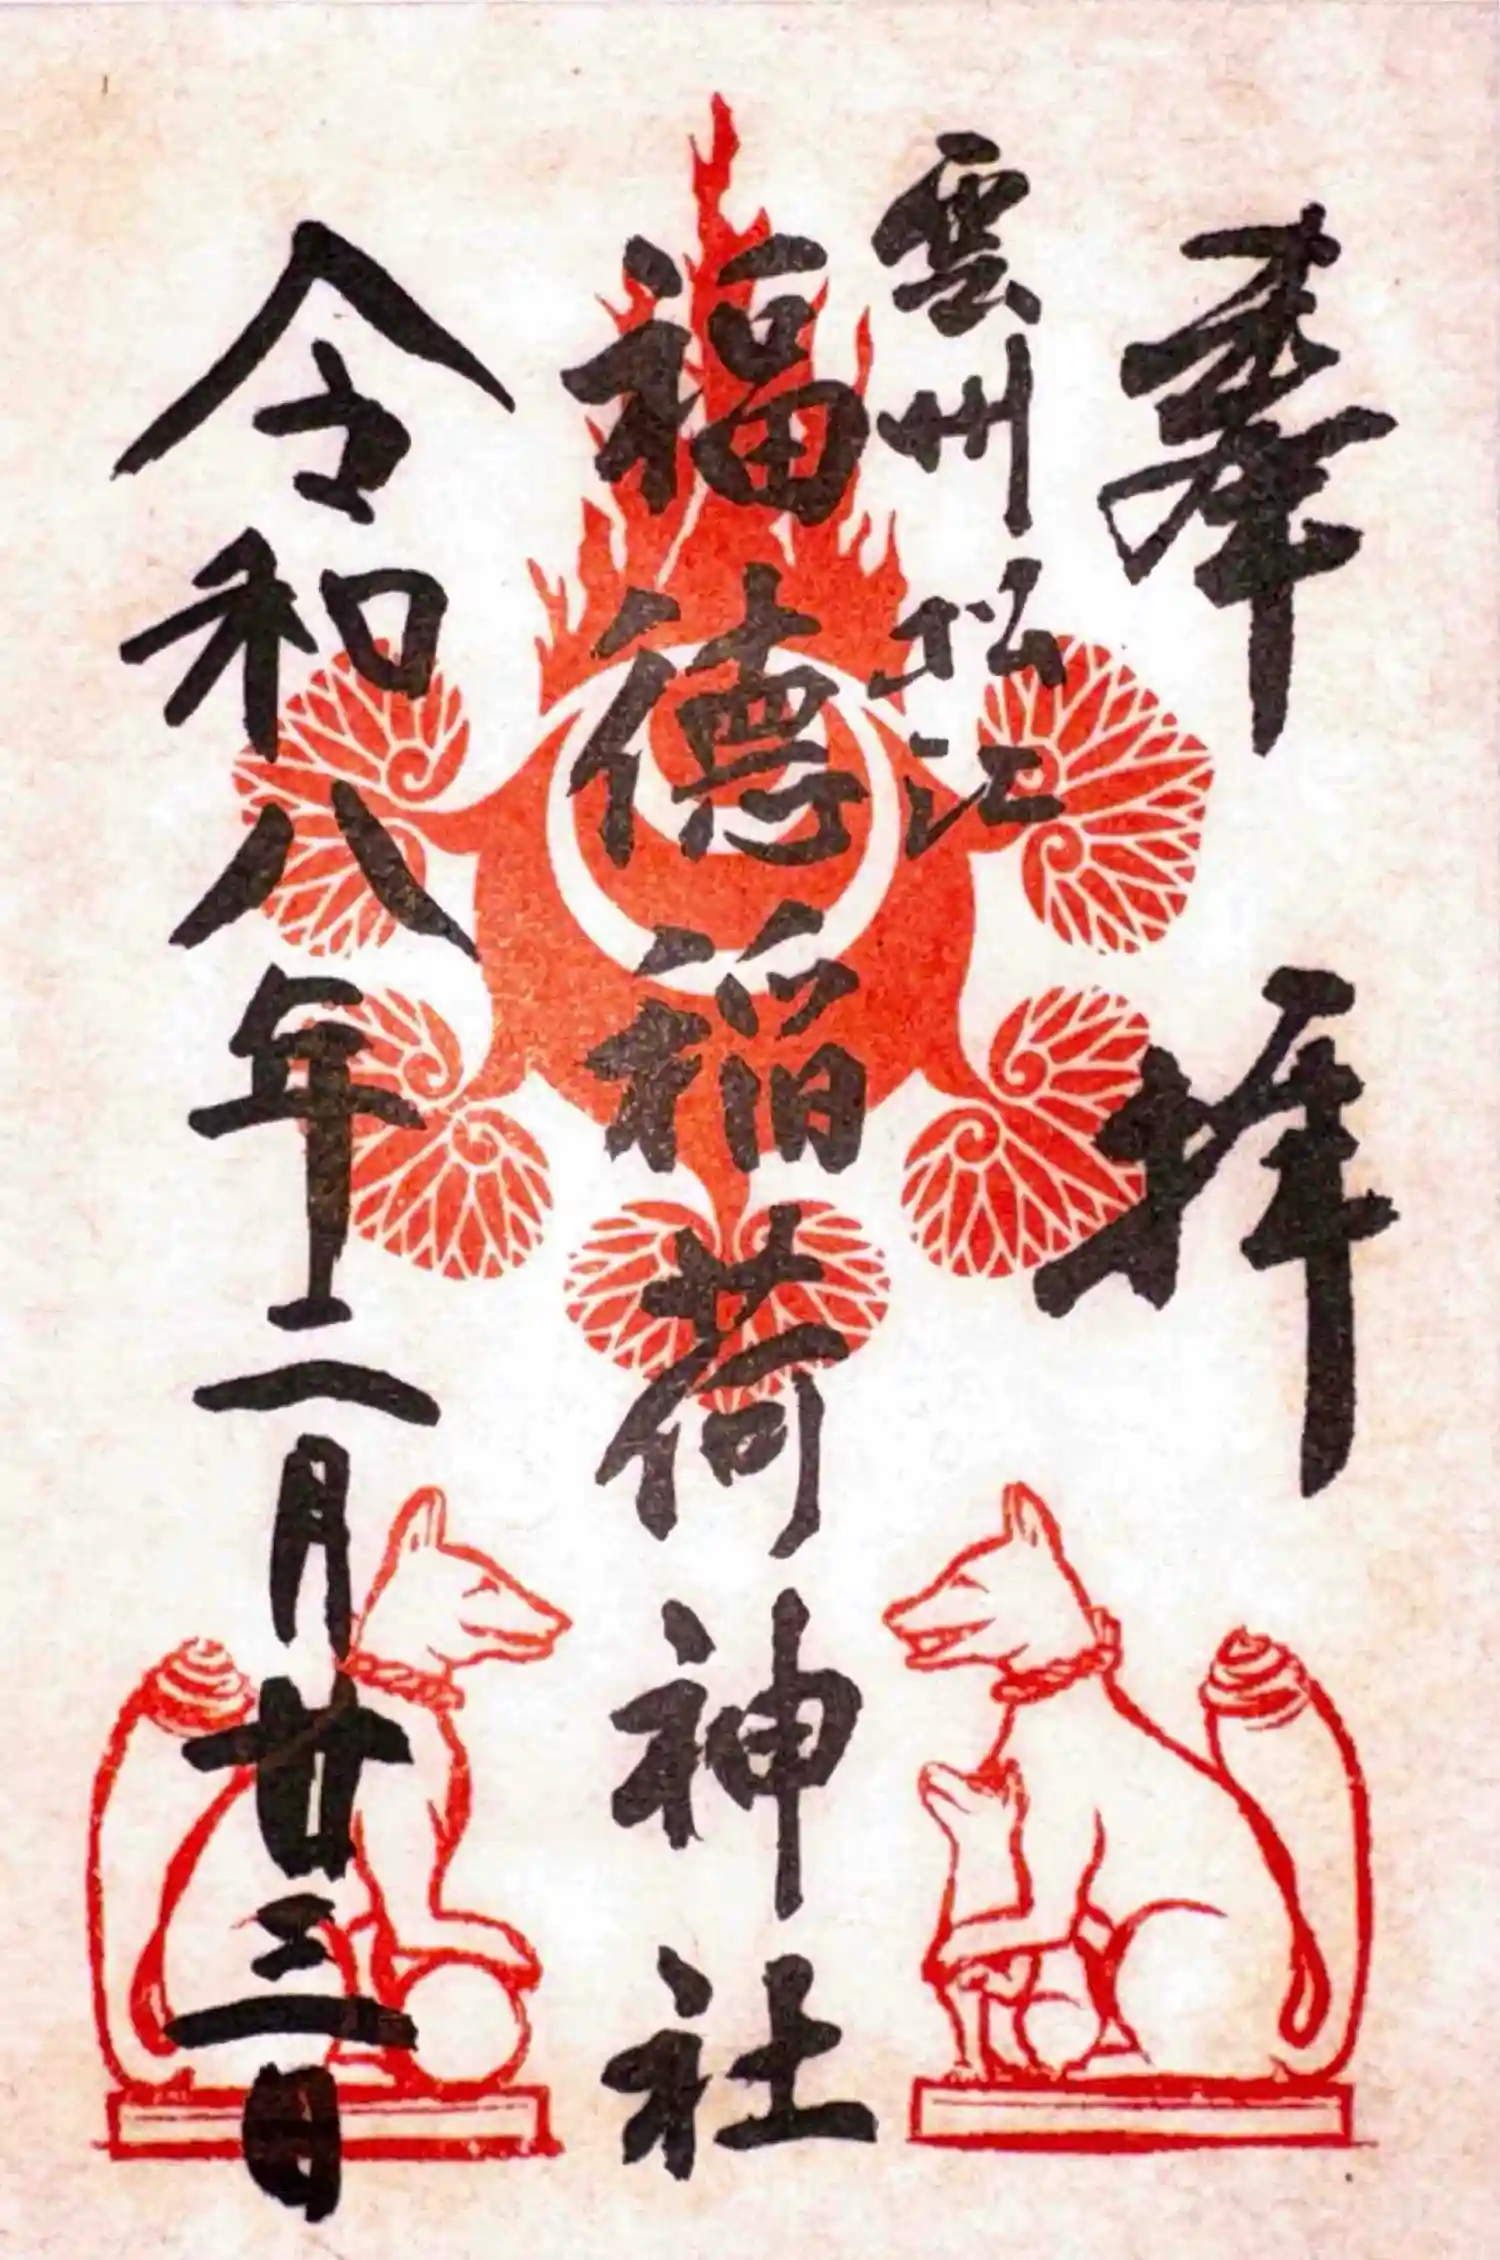 奉拝
雲州松江
福徳稲荷神社
令和八年二月廿三日